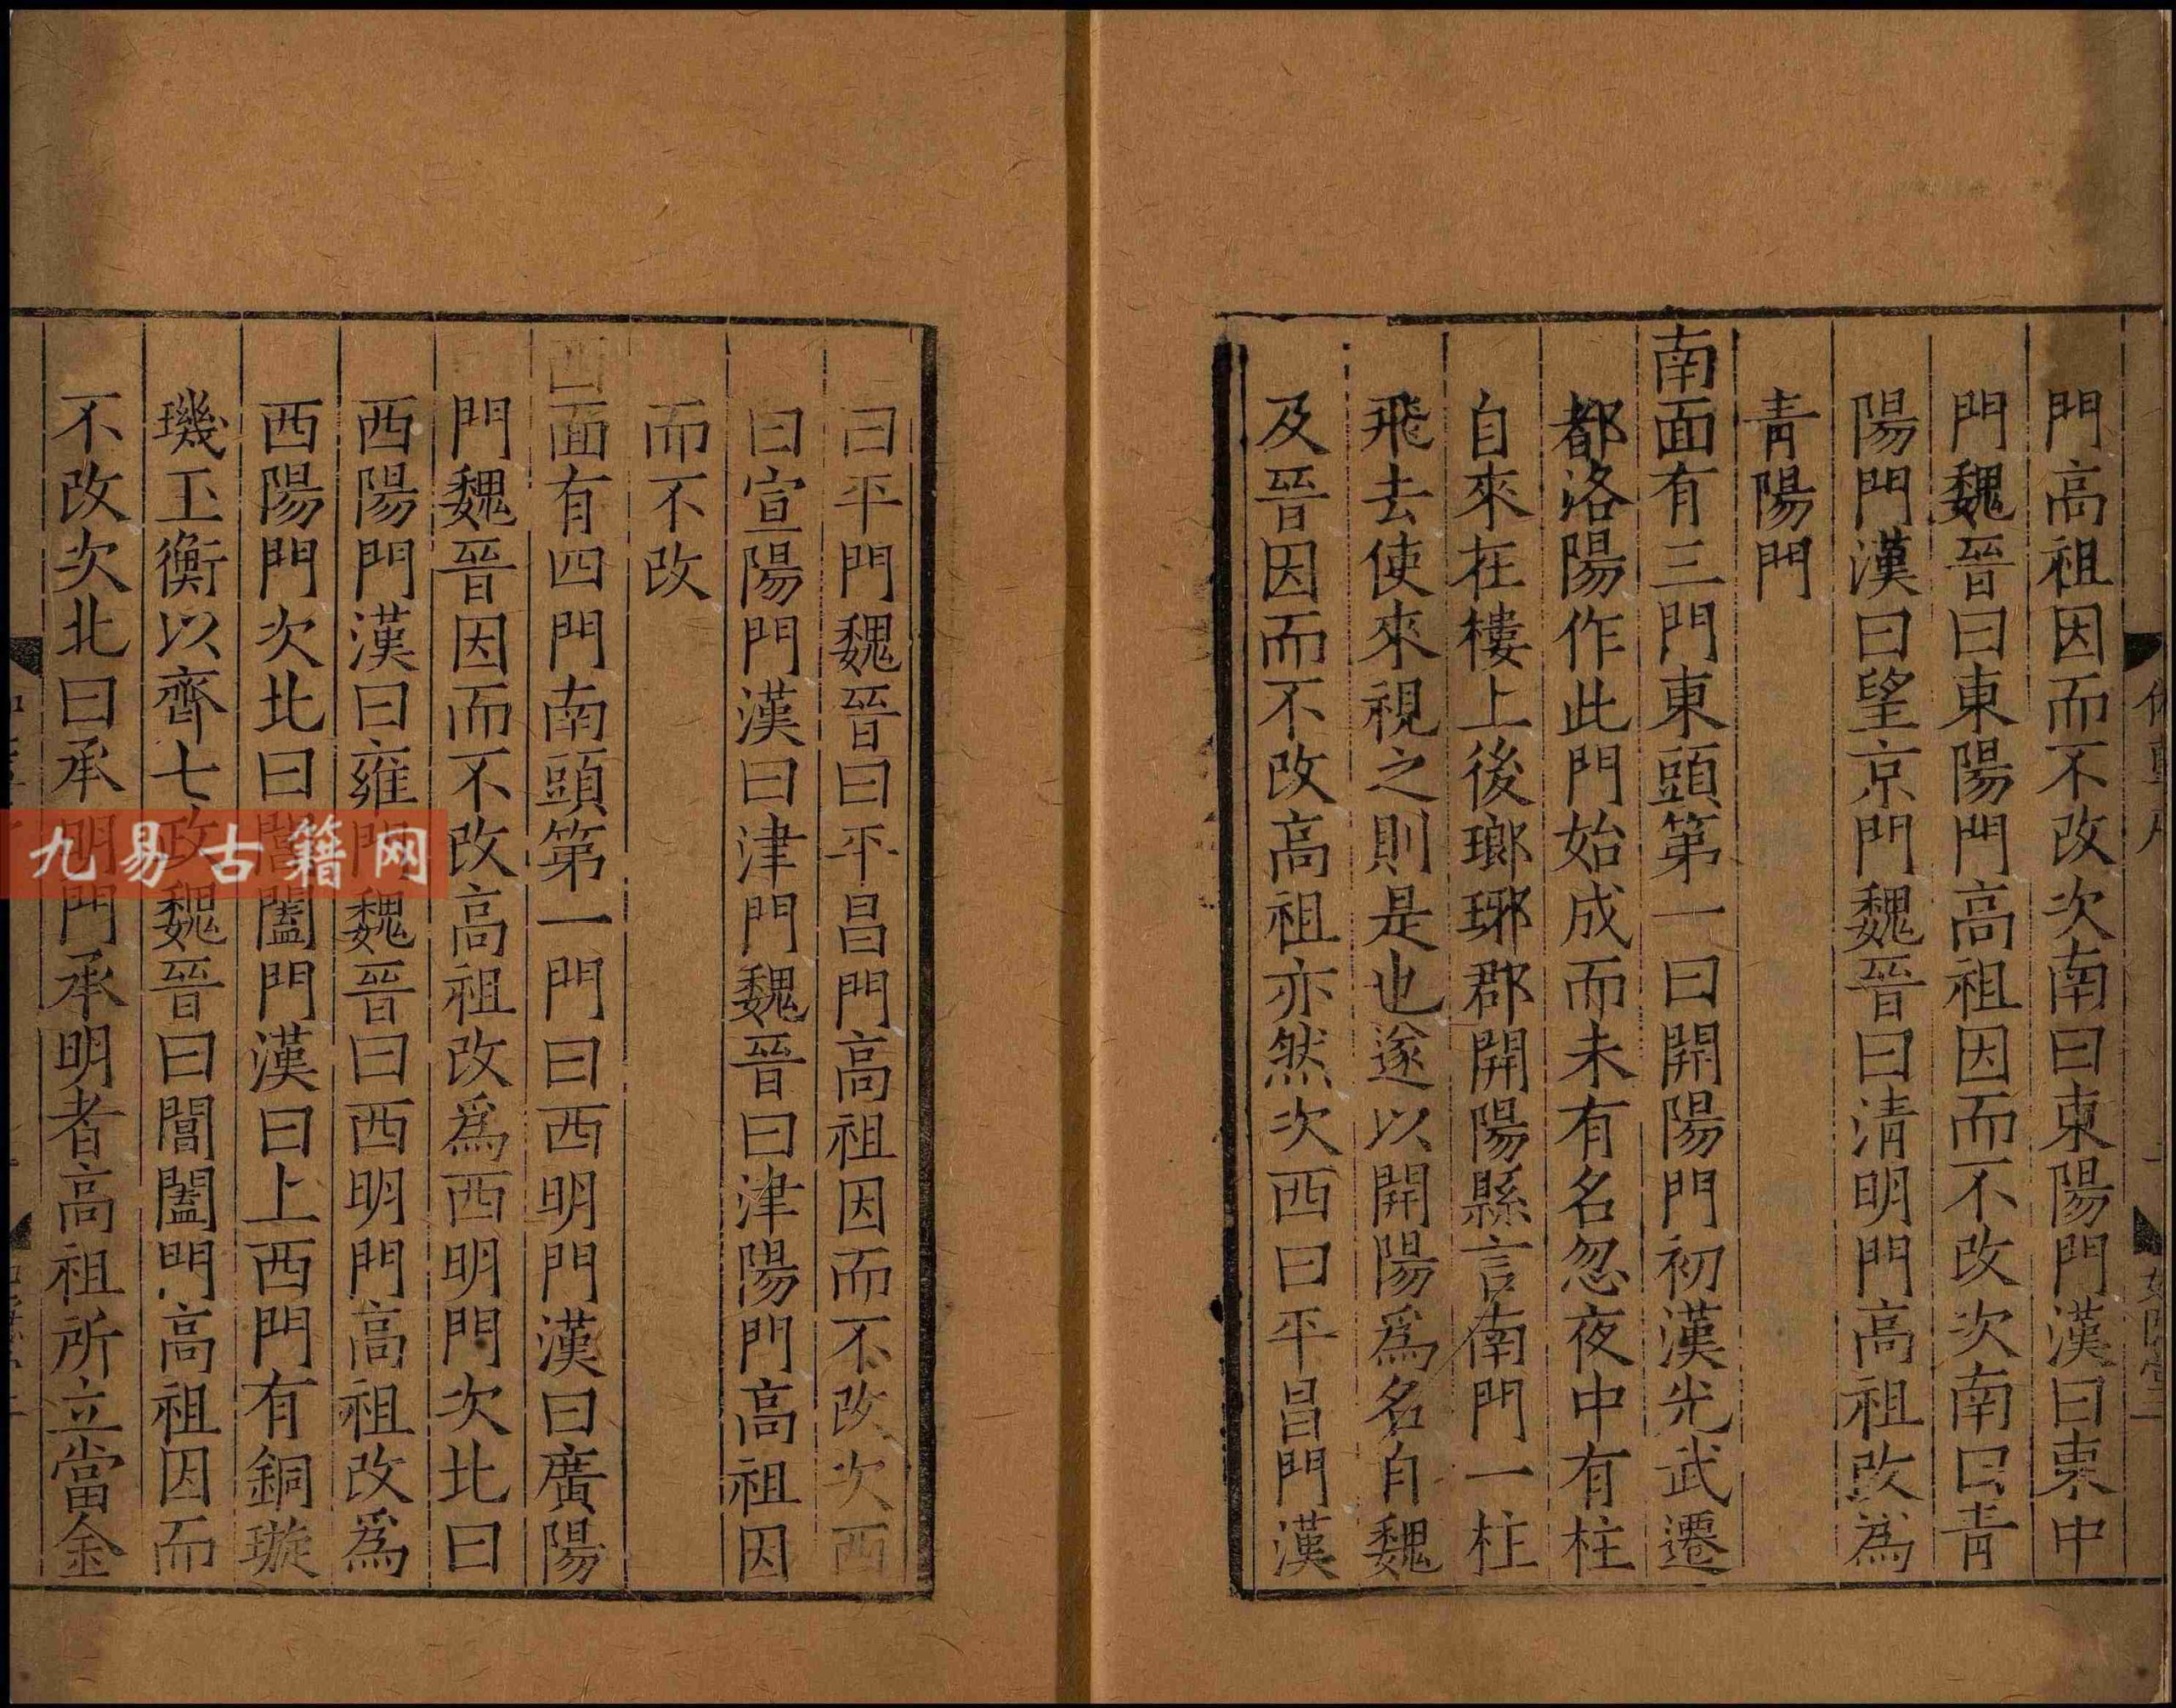 門高祖因而不改次南曰東陽門漢曰東中
門魏晉曰東陽門高祖因而不改次南曰青
陽門漢曰望京門魏晉曰清明門高祖改為
青陽門
南面有三門東頭第一曰開陽門初漢光武遷
都洛陽作此門始成而未有名忽夜中有柱
自來在樓上後瑯琊郡開陽縣言南門一柱
飛去使來視之則是也遂以開陽爲名自魏
及晉因而不改高祖亦然次西曰平昌門漢
曰平門魏晉曰平昌門高祖因而不改次西
曰宣陽門漢曰津門魏晉曰津陽門高祖因
而不改
西面有四門南頭第一門曰西明門漢曰廣陽
門魏晉因而不改高祖改爲西明門次北曰
西陽門漢曰雍門魏晉曰西明門高祖改爲
西陽門次北曰閶闔門漢曰上西門有銅璇
璣玉衡以齊七政魏晉曰閶闔門高祖因而
不改次北曰承明門承明者高祖所立當金
九易古籍网